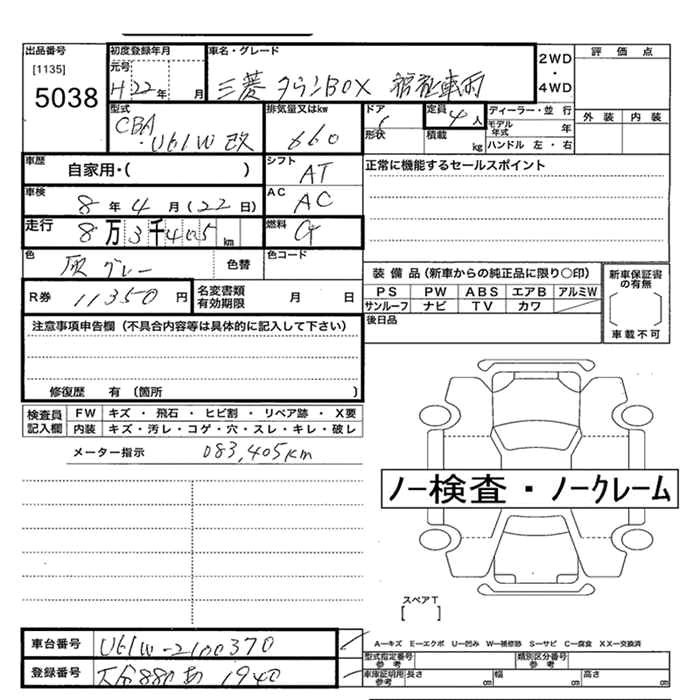 出品番号 [1135] 5038
初度登録年月 元号 H22年 月
車名・グレード 三菱 タウンBOX 福祉車両
2WD・4WD
評価点
外装 内装
型式 CBA・U61W改
排気量又はkw 660
ドア 形状
定員 4人
積載 kg
ディーラー・並行
モデル年式 年
ハンドル 左・右
車歴 自家用・( )
シフト AT
正常に機能するセールスポイント
車検 8年4月(22日)
AC AC
走行 8万3千405km
燃料 G
色 灰 グレー 色替
色コード
R券 11350円
名変書類有効期限 月 日
装備品(新車からの純正品に限り○印)
PS PW ABS エアB アルミW
サンルーフ ナビ TV カワ
新車保証書の有無
車載不可
後日品
注意事項申告欄(不具合内容等は具体的に記入して下さい)
修復歴 有(箇所 )
検査員記入欄
FW キズ・飛石・ヒビ割・リペア跡・X要
内装 キズ・汚レ・コゲ・穴・スレ・キレ・破レ
メーター指示 083,405km
ノー検査・ノークレーム
スペアT
[ ]
A―キズ E―エクボ U―凹み W―補修跡 S―サビ C―腐食 XX―交換済
車台番号 U61W-2100370
登録番号 大分880あ1940
型式指定番号 参考
類別区分番号 参考
車庫証明用 参考 長さ cm 幅 cm 高さ cm